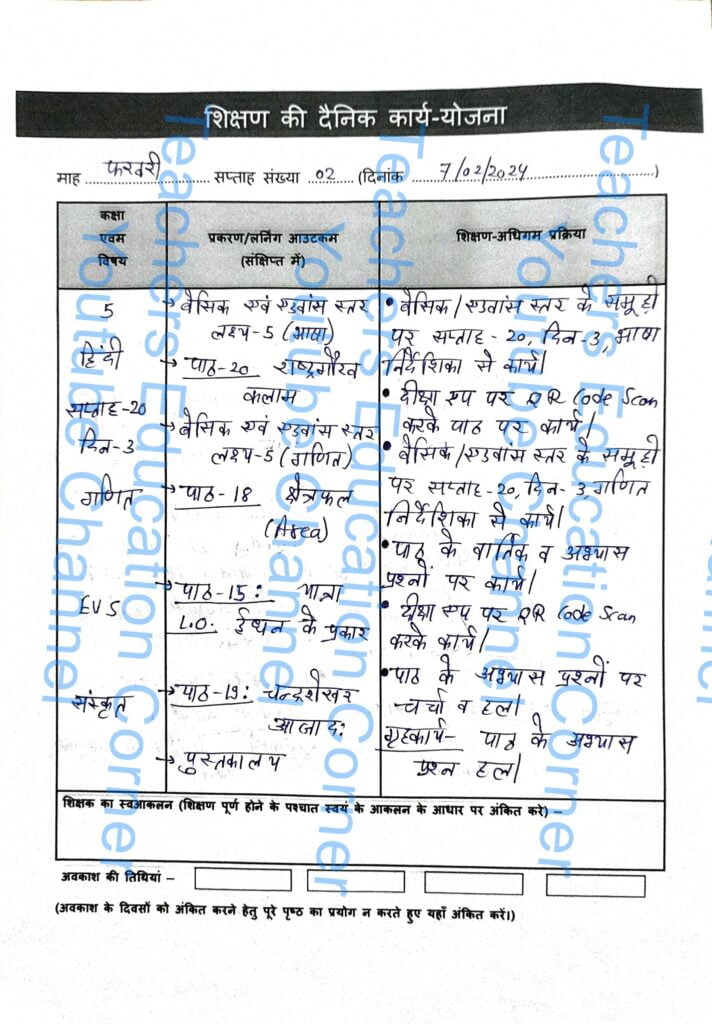 शिक्षण की दैनिक कार्य-योजना
माह फरवरी सप्ताह संख्या 02 (दिनांक 7/02/2024)
कक्षा
एवम
विषय
प्रकरण/लर्निंग आउटकम
(संक्षिप्त में)
शिक्षण-अधिगम प्रक्रिया
5
हिंदी
सप्ताह-20
दिन-3
गणित
EVS
संस्कृत
→ बेसिक एवं एडवांस स्तर
लक्ष्य-5 (भाषा)
→ पाठ-20 राष्ट्रगौरव
कलाम
→ बेसिक एवं एडवांस स्तर
लक्ष्य-5 (गणित)
→ पाठ-18 क्षेत्रफल
(Area)
→ पाठ-15: यात्रा
L.O: ईंधन के प्रकार
→ पाठ-19: चन्द्रशेखर
आजाद:
→ पुस्तकालय
• बेसिक/एडवांस स्तर के समूहों
पर सप्ताह-20, दिन-3, भाषा
निर्देशिका से कार्य।
• दीक्षा एप पर QR Code Scan
करके पाठ पर कार्य।
• बेसिक/एडवांस स्तर के समूहों
पर सप्ताह-20, दिन-3, गणित
निर्देशिका से कार्य।
• पाठ के वार्तिक व अभ्यास
प्रश्नों पर कार्य।
• दीक्षा एप पर QR Code Scan
करके कार्य।
• पाठ के अभ्यास प्रश्नों पर
चर्चा व हल।
गृहकार्य- पाठ के अभ्यास
प्रश्न हल।
शिक्षक का स्वआकलन (शिक्षण पूर्ण होने के पश्चात स्वयं के आकलन के आधार पर अंकित करे) –
अवकाश की तिथियां –
(अवकाश के दिवसों को अंकित करने हेतु पूरे पृष्ठ का प्रयोग न करते हुए यहाँ अंकित करें।)
Teachers Education Corner
Youtube Channel
Teachers Education Corner
Youtube Channel
Teachers Education Corner
Youtube Channel